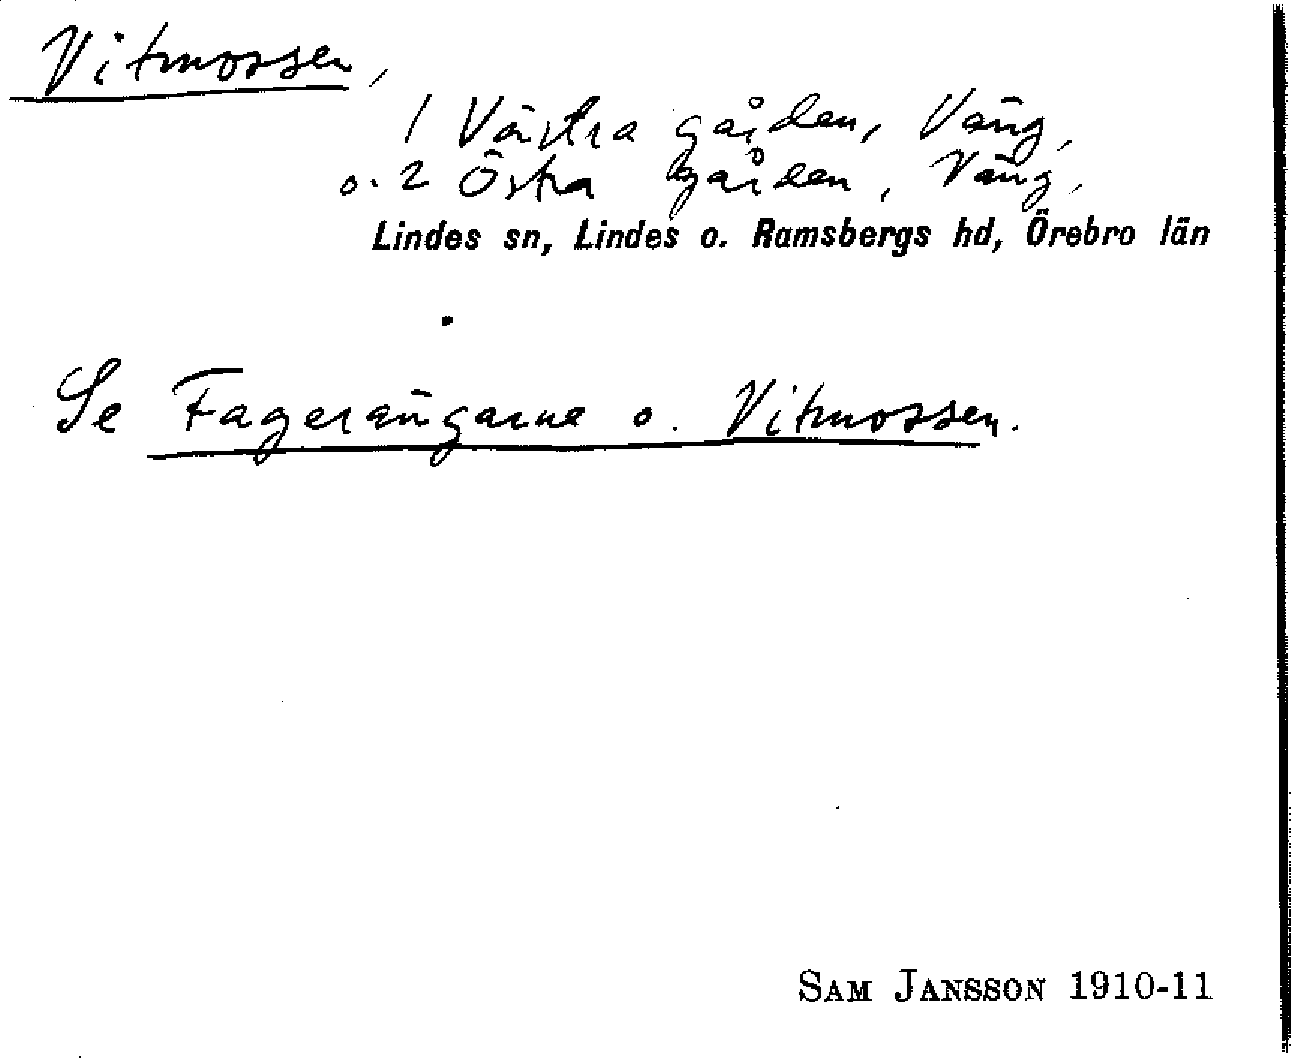 Vitmossen,
1 Västra gården, Väng,
o. 2 Östra gården, Väng,
Lindes sn, Lindes o. Ramsbergs hd, Örebro län
Se Fagerängarne o. Vitmossen.
SAM JANSSON 1910-11